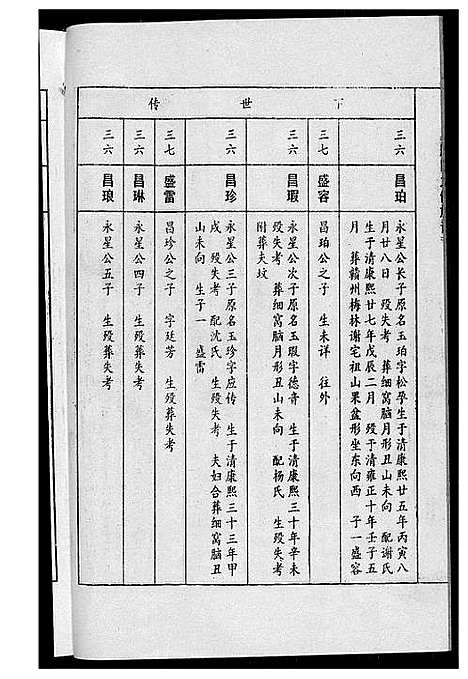 下世传
三六
昌珀
永星公长子原名玉珀字松孕生于清康熙廿五年丙寅八
月廿八日 殁失考 葬细窝脑月形丑山未向 配谢氏
生于清康熙廿七年戊辰二月 殁于清雍正十年壬子五
月 葬赣州梅林谢宅祖山果盆形坐东向西 子一盛容
三七
盛容
昌珀公之子 生未详 往外
三六
昌瑕
永星公次子原名玉瑕字德音 生于清康熙三十年辛未
殁失考 葬细窝脑月形丑山未向 配杨氏 生殁失考
附葬夫坟
三六
昌珍
永星公三子原名玉珍字应传 生于清康熙三十三年甲
戌 殁失考 配沈氏 生殁失考 夫妇合葬细窝脑丑
山未向 生子一 盛雷
三七
盛雷
昌珍公之子 字廷芳 生殁葬失考
三六
昌琳
永星公四子 生殁葬失考
三六
昌琅
永星公五子 生殁葬失考